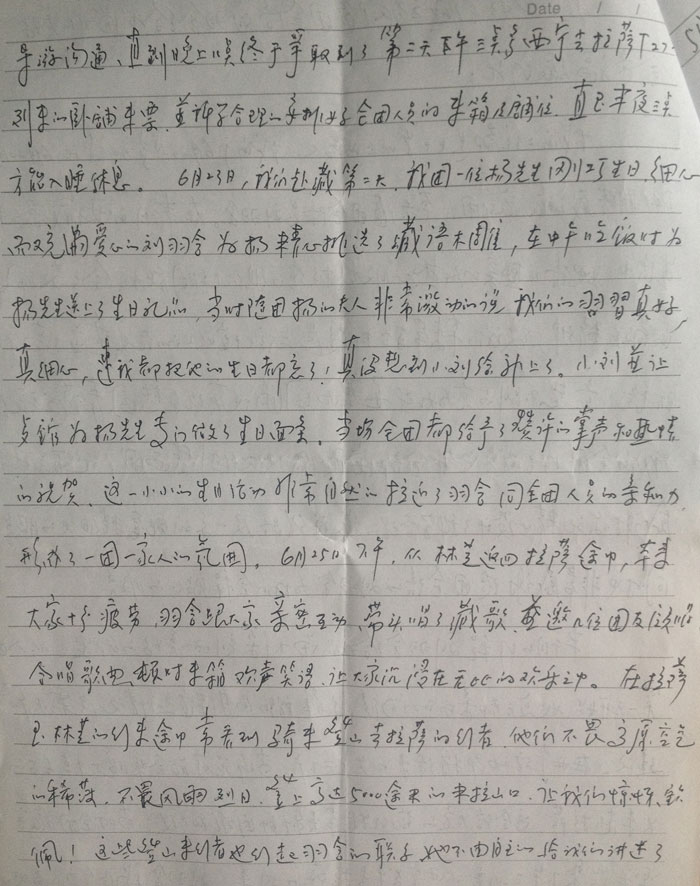 Date / /
导游沟通、直到晚上11点终于争取到了第二天下午三点多西宁去拉萨T27
列车的卧铺车票,并评予合理的安排好全团人员的车箱及铺位,直已半夜三点
才能入睡休息。 6月23日,我们赴藏第二天,我团一位杨先生刚过生日,细心
而又充满爱心的刘羽含为杨精心挑选了藏语木周佳,在中午吃饭时为
杨先生送上了生日礼品,当时随团杨的夫人非常激动的说,我们的羽習真好,
真细心,连我都把他的生日都忘了!真没想到小刘给补上了。小刘並让
为杨先生专门做了生日面条,当场全团都给予了赞许的掌声和热情
的祝贺,这一小小的生日活动非常自然的拉近了羽含同全团人员的亲和力,
形成了一团一家人的氛围。 6月25日下午,从林芝返回拉萨途中,车上
大家十分疲劳,羽含跟大家亲密互动,带头唱了藏歌,並邀几位团友
合唱歌曲,顿时车箱欢声笑语,让大家沉浸在无比的欢乐之中。在拉萨
至林芝的行车途中常看到骑车登山去拉萨的行者,他们不畏高原空气
的稀薄,不畏风雨烈日,登上高达5000余米的米拉山口,让我们惊叹、钦
佩!这些登山车行者也引起羽含的联手,她不由自主的给我们讲述了